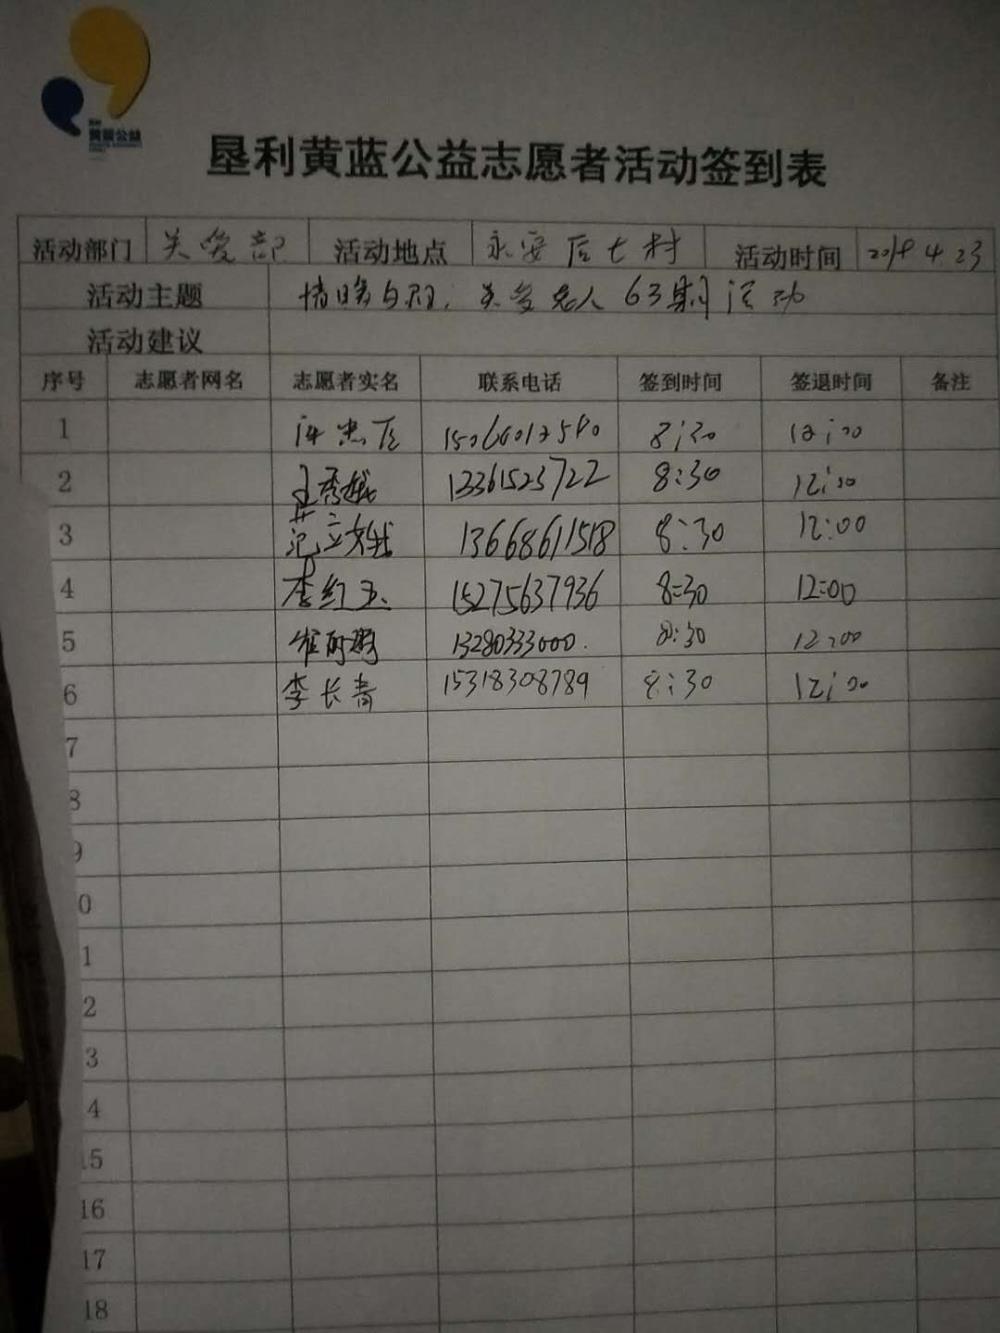 黄蓝公益
垦利黄蓝公益志愿者活动签到表
活动部门 关爱部 活动地点 永安后七村 活动时间 4.23
活动主题 情暖夕阳，关爱老人63期活动
活动建议
序号 志愿者网名 志愿者实名 联系电话 签到时间 签退时间 备注
1 8:30 12:00
2 王秀娥 13361523722 8:30 12:00
3 范立娥 13668611518 8:30 12:00
4 李红玉 15275637936 8:30 12:00
5 13280333000. 8:30 12:00
6 李长青 15318308789 8:30 12:00
7
8
9
0
1
2
3
4
15
16
17
18